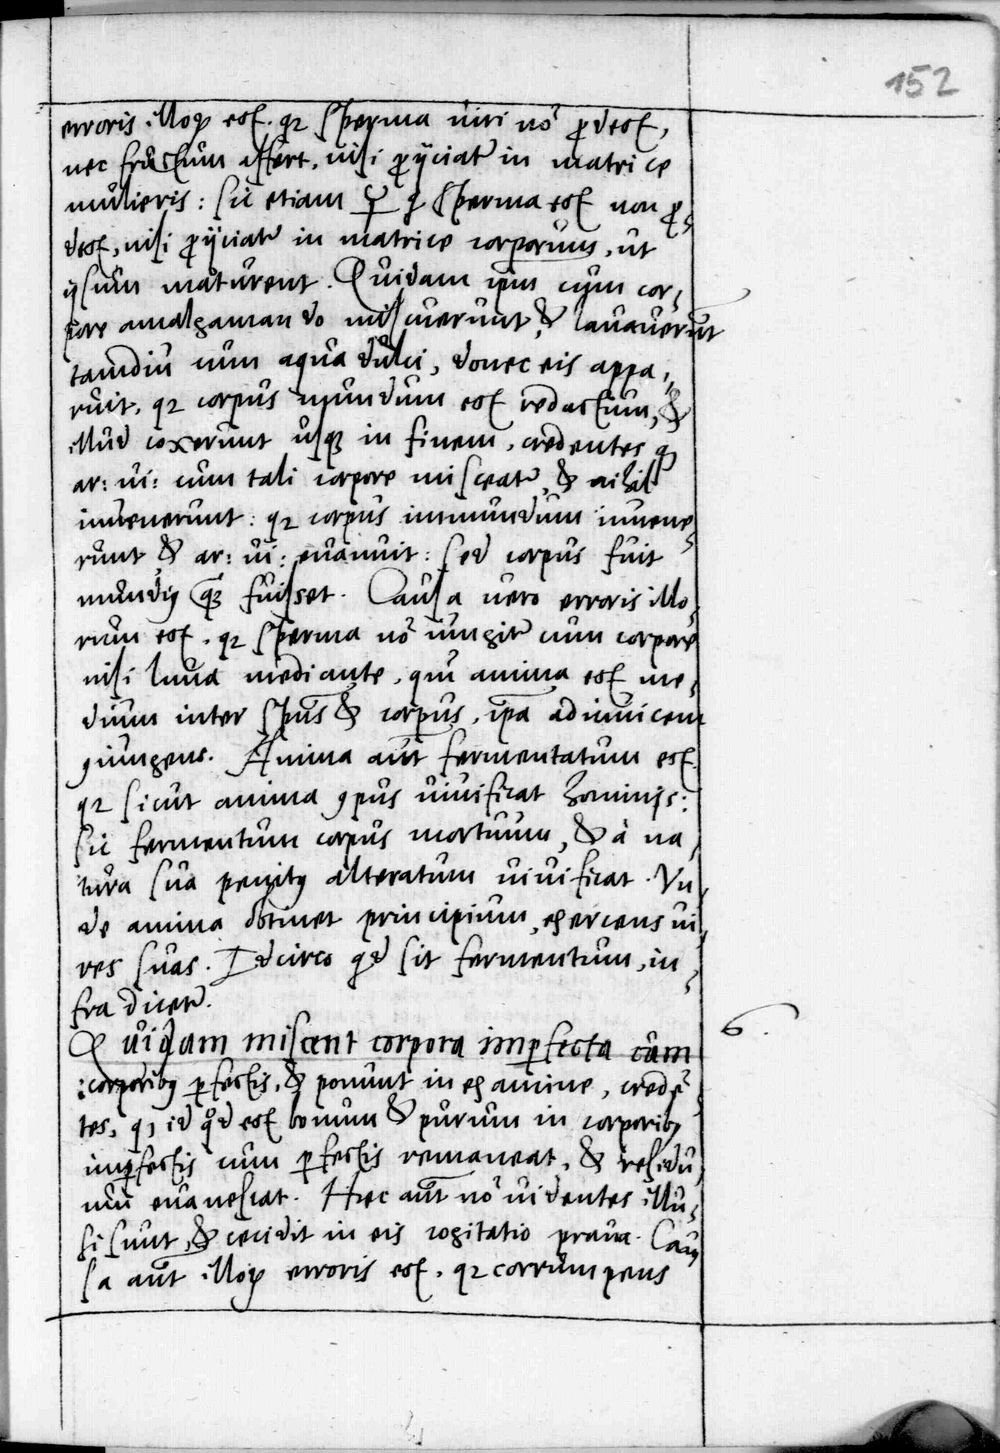 152
erroris illoꝝ est. qꝛ sperma uiri nō ꝓdest,
nec fructum affert, nisi ꝓijciatr̄ in matrice
mulieris: sic etiam ☿ q̃ sperma est non ꝓ,
dest, nisi ꝓijciatr̄ in matrice corporum, ut
ipsum maturent. Quidam ipm̄ cum cor,
pore amalgamando miscuerunt, & lauauerunt
tamdiu cum aqua dulci, donec eis appa,
ruit, qꝛ corpus mundum est redactum, &
illud coxerunt usqꝫ in finem, credentes qꝫ
ar: ui: cum tali corpore misceatr̄, & nihil
inuenerunt: qꝛ corpus inmundum inuene,
runt & ar: ui: euanuit: sed corpus fuit
mundiꝰ qꝫ fuisset. Causa uero erroris illo,
rum est, qꝛ sperma nō iungitr̄ cum corpore
nisi luna mediante, qm̄ anima est me,
dium inter sp̄us & corpus, ipā adinuicem
ꝯiungens. Anima aūt fermentatum est.
qꝛ sicut anima ꝯpus uiuificat hominis:
sic fermentum corpus mortuum, & à na,
tura sua penitꝰ alteratum uiuificat. Vn,
de anima obtinet principium, exercens ui,
res suas. Idcirco qd̄ sit fermentum, in,
fra dicetr̄.
Quidam miscent corpora imperfecta cum
6.
corporibꝰ ꝑfectis, & ponunt in examine, credē,
tes, qꝫ id qd̄ est bonum & purum in corporibꝰ
imꝑfectis cum ꝑfectis remaneat, & residu,
um euanescat. Hec aūt nō uidentes illu,
si sunt, & cecidit in eis cogitatio praua. Cau
sa aūt illoꝝ erroris est, qꝛ corrumpens